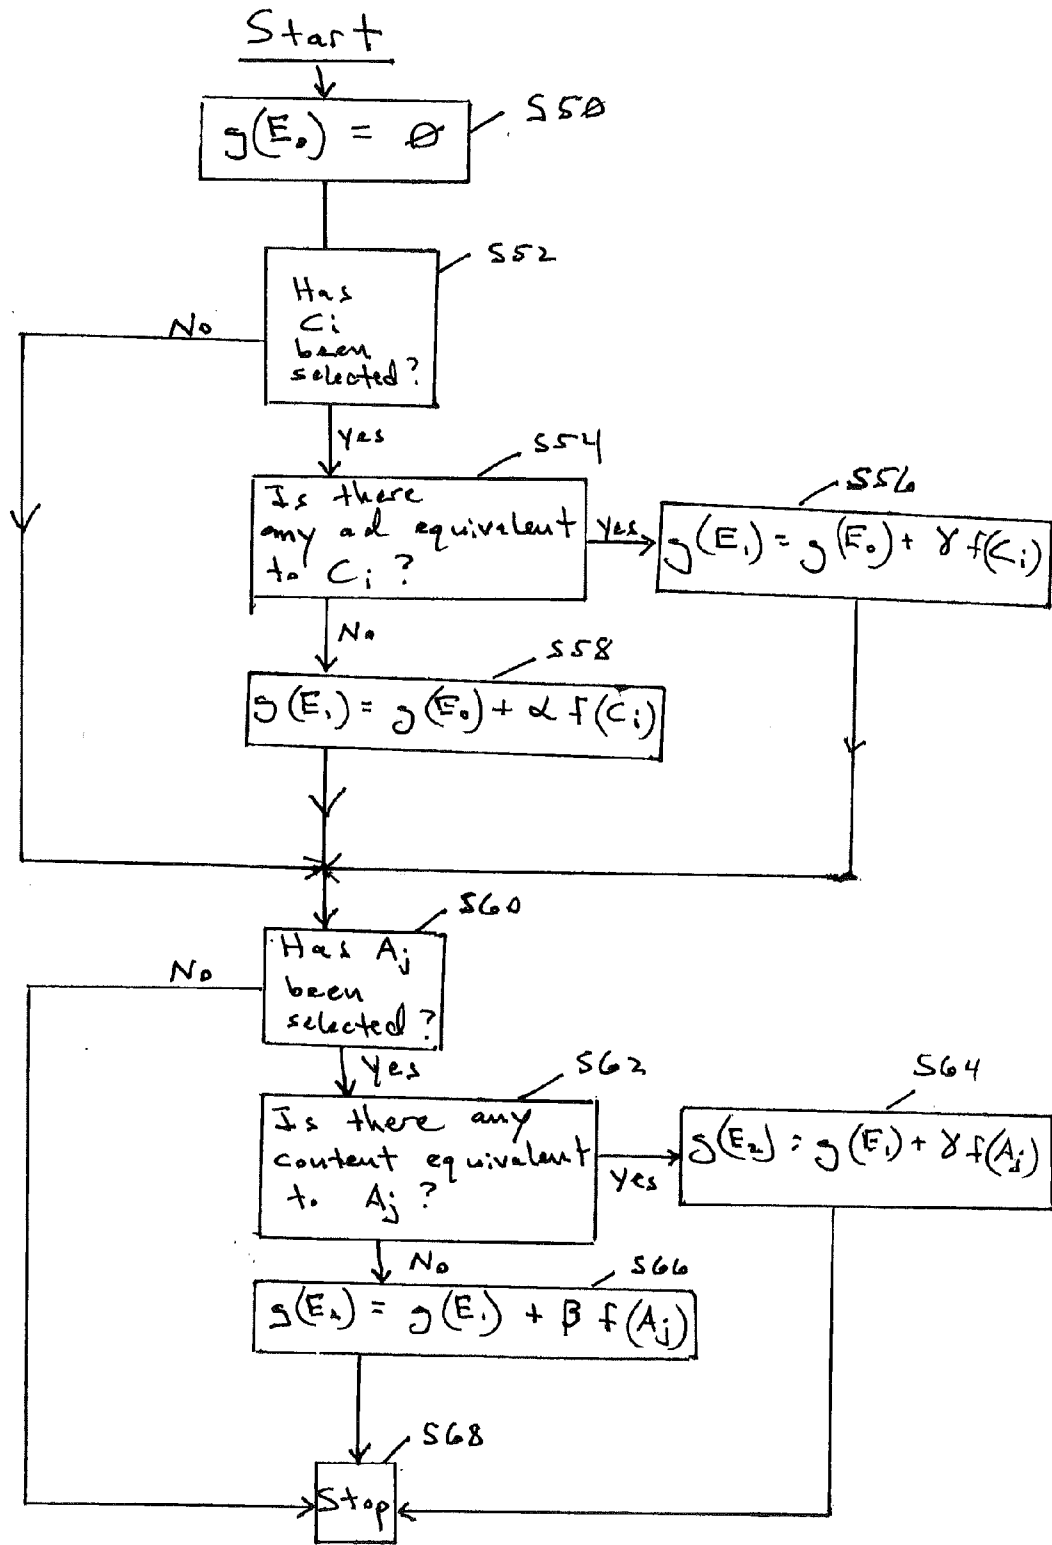 Start
S50
g(E₀) = ∅
S52
Has
Ci
been
selected?
No
Yes
S54
Is there
any ad equivalent
to Ci ?
Yes
S56
g(E₁) = g(E₀) + γ f(Ci)
No
S58
g(E₁) = g(E₀) + α f(Ci)
S60
Has Aj
been
selected?
No
Yes
S62
Is there any
content equivalent
to Aj ?
Yes
S64
g(E₂) = g(E₁) + γ f(Aj)
No
S66
g(E₂) = g(E₁) + β f(Aj)
S68
Stop